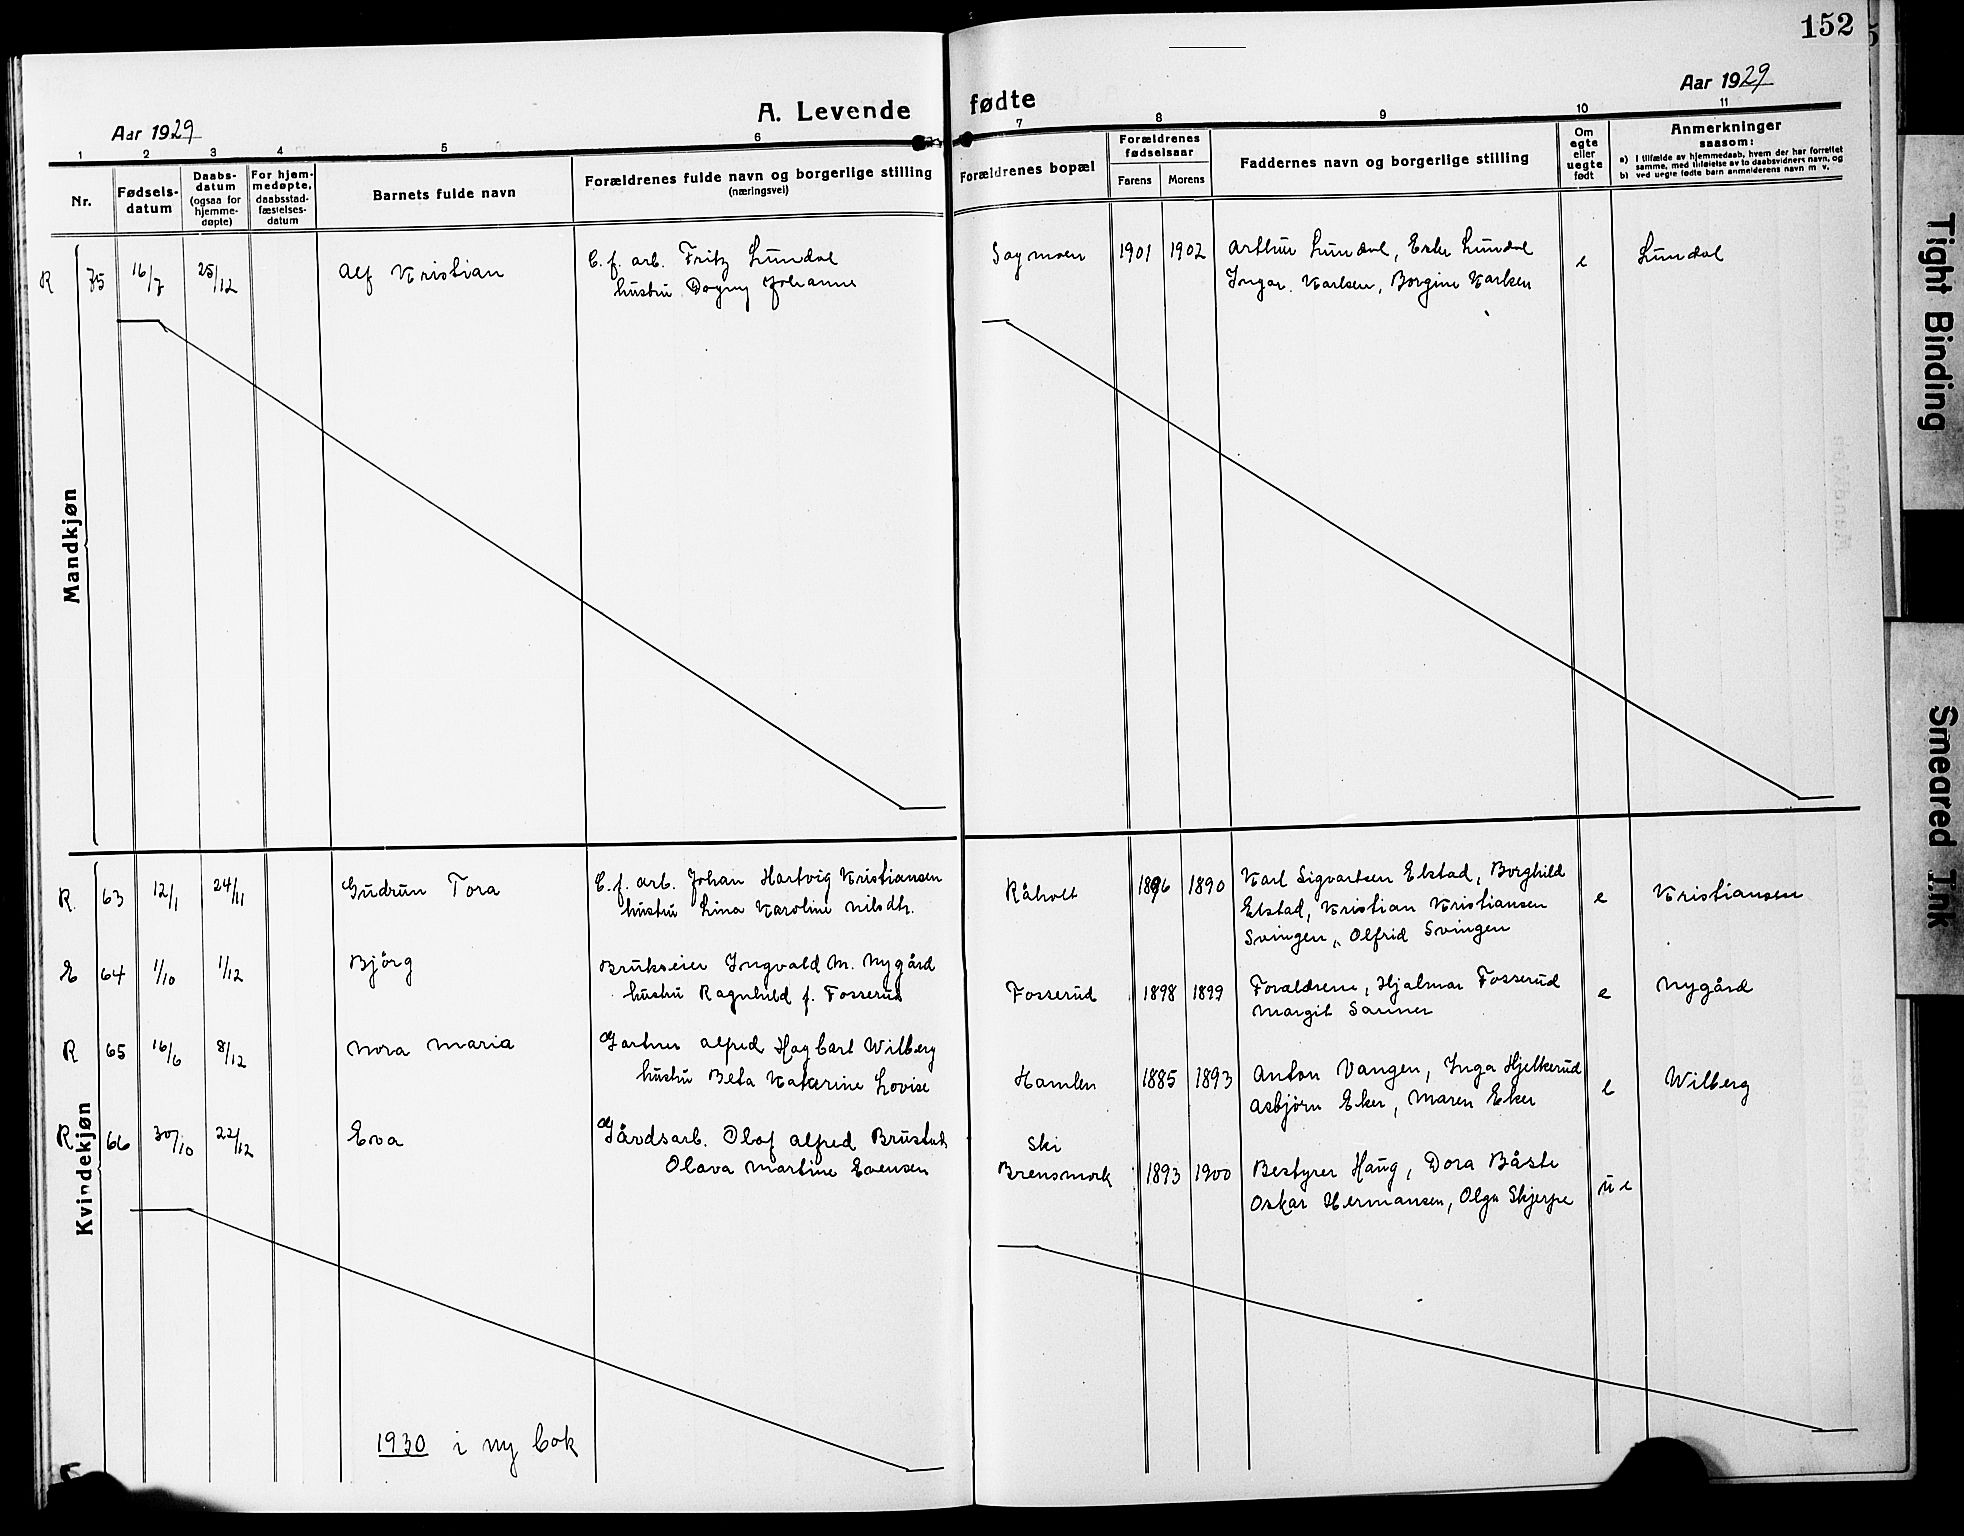 152
Aar 1929
A. Levende fødte
Aar 1929
1 2 3 4 5 6 7 8 9 10 11
Nr.
Fødsels-
datum
Daabs-
datum
(ogsaa for
hjemme-
døpte)
For hjem-
medøpte,
daabsstad-
fæstelses-
datum
Barnets fulde navn
Forældrenes fulde navn og borgerlige stilling
(næringsvei)
Forældrenes bopæl
Forældrenes
fødselsaar
Farens Morens
Faddernes navn og borgerlige stilling
Om
egte
eller
uegte
født
Anmerkninger
saasom:
a) I tilfælde av hjemmedaab, hvem der har forrettet
samme, med tilføielse av to daabsvidners navn, og
b) ved uegte fødte barn anmelderens navn m. v.
Mandkjøn
R 75 16/7 25/12 Alf Kristian
C. f. arb. Fritz Lundal
hustru Dagny Johanne
Sagmoen 1901 1902
Arthur Lundal, Lundal
Ingar Karlsen, Borgine Karlsen
e Lundal
Kvindekjøn
R. 63 12/1 24/11 Gudrun Tora
C. f. arb. Johan Hartvig Kristiansen
hustru Lina Karoline Nilsdtr.
Råholt 1896 1890
Karl Sigvartsen Elstad, Borghild
Elstad, Kristian Kristiansen
Svingen, Olfrid Svingen
e Kristiansen
E 64 1/10 1/12 Bjørg
Brukseier Ingvald M. Nygård
hustru Ragnhild f. Fosserud
Fosserud 1898 1899
Forældrene, Hjalmar Fosserud
Margit Sanner
e Nygård
R 65 16/6 8/12 Nora Maria
Gartner Alfred Hagbart Wilberg
hustru Beta Katerine Lovise
Hamlen 1885 1893
Anton Vangen, Inga Hjelkerud
Asbjørn Eker, Maren Eker
e Wilberg
R 66 30/10 22/12 Eva
Gårdsarb. Olaf Alfred
Olava Martine Evensen
Ski
Brensmork 1893 1900
Bestyrer Haug, Dora Båste
Oskar Hermansen, Olga Skjerpe
u e
1930 i ny bok
Tight Binding
Smeared Ink